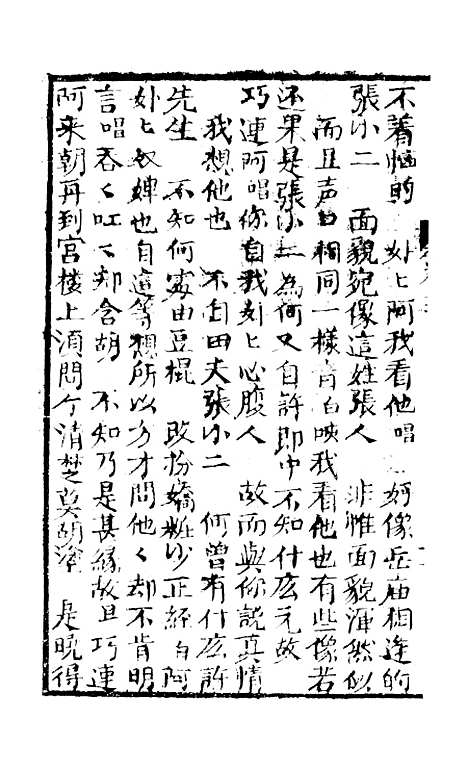 不着惱的 姐〻阿我看他唱 好像岳庙相逢的
張小二 面貌宛像這姓張人 非惟面貌渾然似
而且声白相同一樣音 咳我看他也有些像若
还果是張小二為何又自許郎中不知什広元故
巧連阿唱你自我姐〻心腹人 故而與你説真情
我想他也 不自田夫張小二 何曾有什広許
先生 不知何處由豆棍 改扮嬌粧少正經白阿
姐〻奴婢也自這等想所以方才問他〻却不肯明
言唱吞〻吐〻却含胡 不知乃是甚縁故且巧連
阿来朝再到宮楼上須問个清楚莫胡塗 是晚得